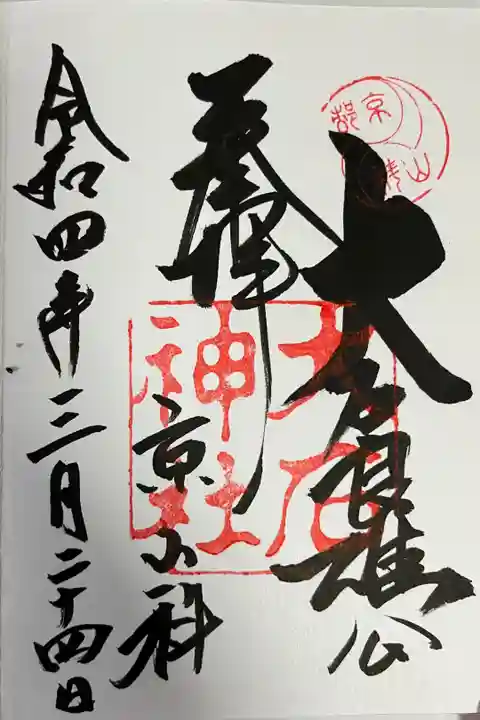 京都
大石良雄公
大石神社
奉拝
京山科
令和四年三月二十四日